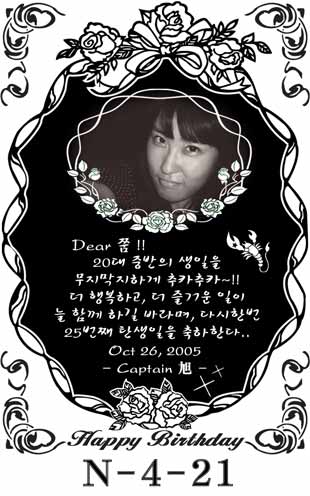 Dear 쭘 !!
20대 중반의 생일을
무지막지하게 추카추카~!!
더 행복하고, 더 즐거운 일이
늘 함께 하길 바라며, 다시한번
25번째 탄생일을 축하한다..
Oct 26, 2005
- Captain 旭 -
Happy Birthday
N-4-21